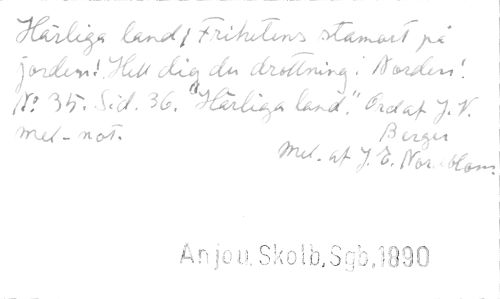 Härliga land, Frihetens stamort på
jorden! Hell dig du drottning i Norden!
No 35. Sid. 36. "Härliga land". Ord af J. V.
mel-not. Berger
Mel. af J. E. Nordblom.
Anjou, Skolb, Sgb, 1890